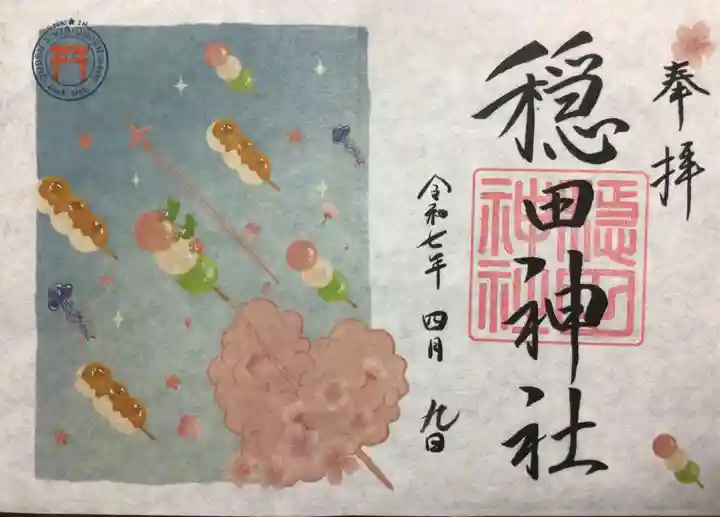 奉拝
穏田神社
令和七年 四月 九日
穏田
神社